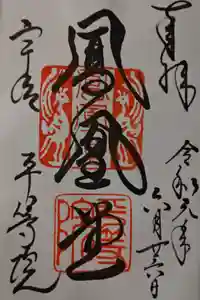 奉拝
令和元年
六月廿六日
鳳凰堂
宇治
平等院